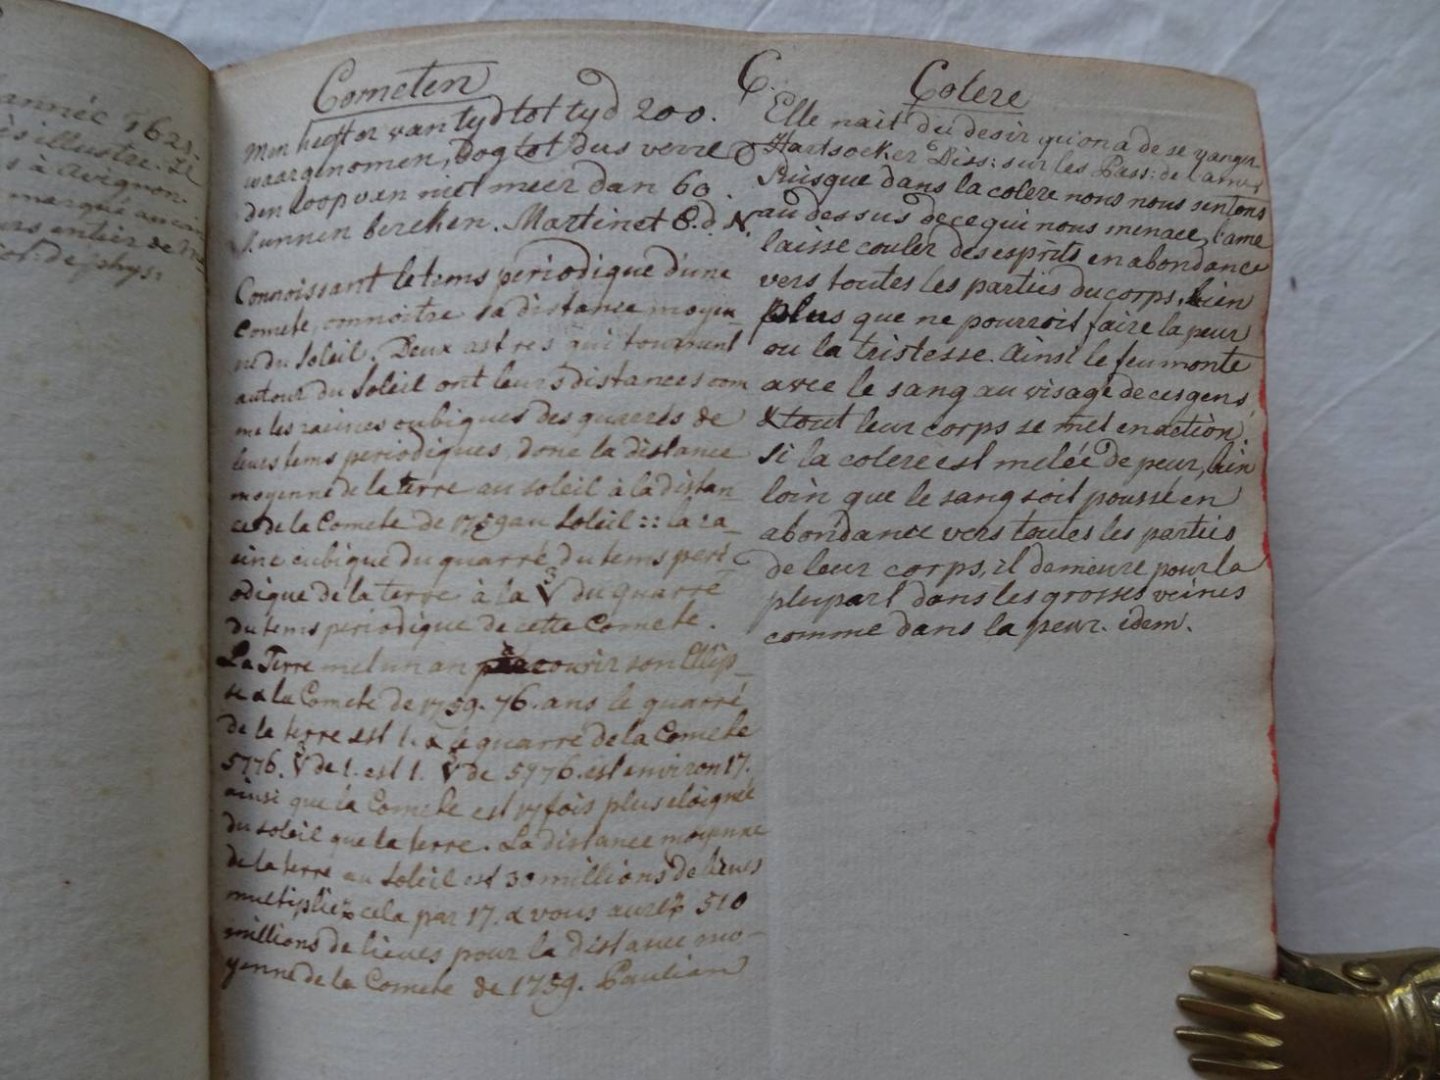 année 1621.
illustre. Il
s à Avignon
marqué
urs entier de
de phys:
C.
Cometen
Men heeft er van tyd tot tyd 200.
waargenomen, dog tot dus verre
den loop van niet meer dan 60.
kunnen bereken. Martinet C. d. N.
Connoissant le tems periodique d'une
Comete, connoitre sa distance moyen_
ne du Soleil. Deux astres qui tournent
autour du Soleil ont leurs distances com
me les racines cubiques des quarrés de
leurs tems periodiques, donc la distance
moyenne de la terre au soleil à la distan_
ce de la Comete de 1759 au Soleil :: la ra_
cine cubique du quarré du tems peri
odique de la terre à la ∛ du quarré
du tems periodique de cette Comete.
La Terre met un an à parcourir son Ellip_
se & la Comete de 1759. 76. ans le quarré
de la terre est 1. & le quarré de la Comete
5776. ∛ de 1. est 1. ∛ de 5776. est environ 17.
ainsi que la Comete est 17 fois plus eloignée
du soleil que la terre. La distance moyenne
de la terre au Soleil est 30 millions de lieues
multipliez cela par 17. & vous aurez 510
millions de lieues pour la distance mo-
yenne de la Comete de 1759. Paulian
Colere
Elle nait du desir qu'on a de se vanger
Hartsoeker Diss: sur les Pass: de l'ame
Puisque dans la colere nous nous sentons
au dessus de ce qui nous menace, l'ame
laisse couler des esprits en abondance
vers toutes les parties du corps, bien
plus que ne pourroit faire la peur
ou la tristesse. Ainsi le feu monte
avec le sang au visage de ces gens,
& tout leur corps se met en action.
Si la colere est melée de peur, bien
loin que le sang soit poussé en
abondance vers toutes les parties
de leur corps, il demeure pour la
plupart dans les grosses veines
comme dans la peur. idem.